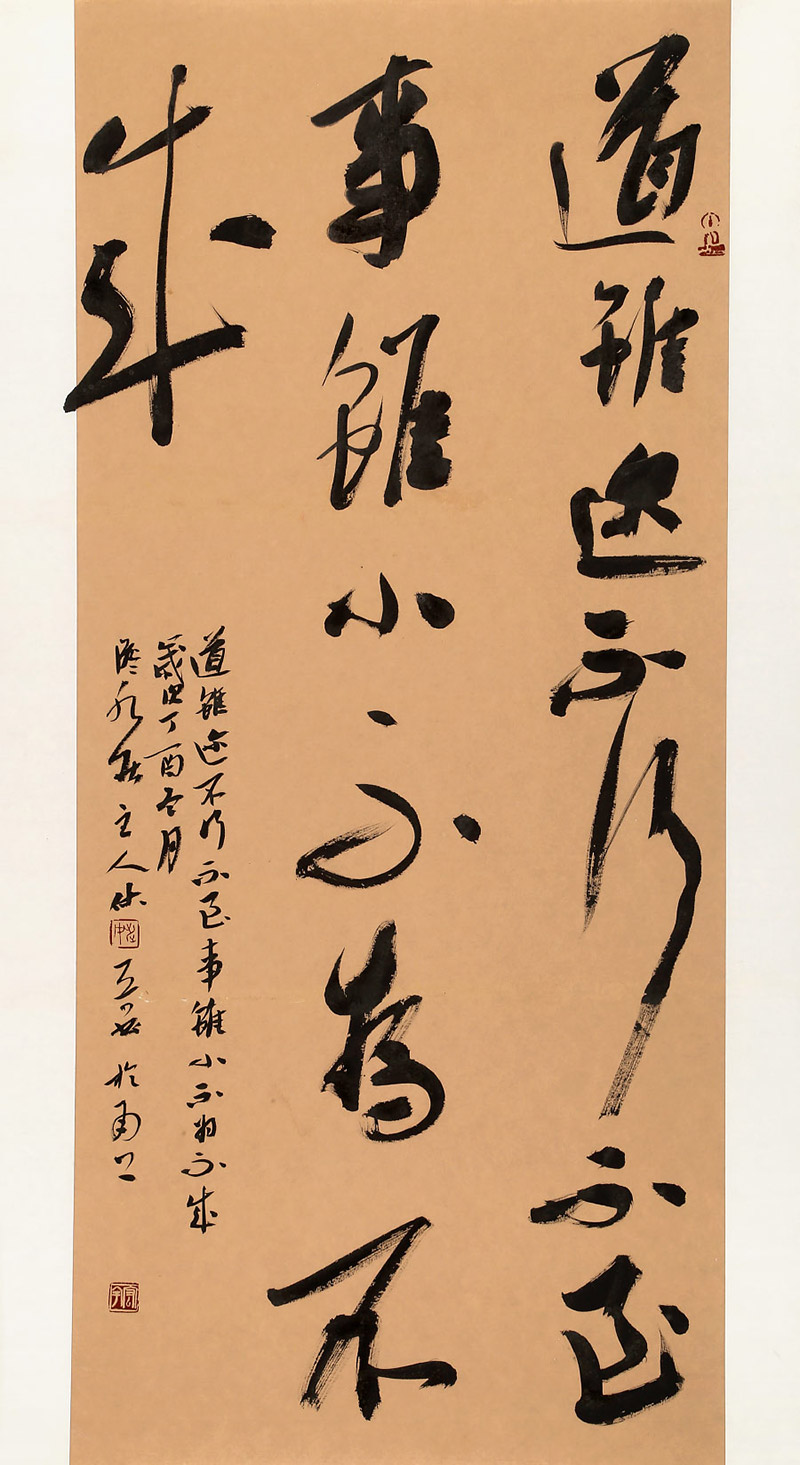 道雖迩不行不至
事雖小不為不
成
道雖迩不行不至事雖小不為不成
歲次丁酉冬月
主人
於甬上